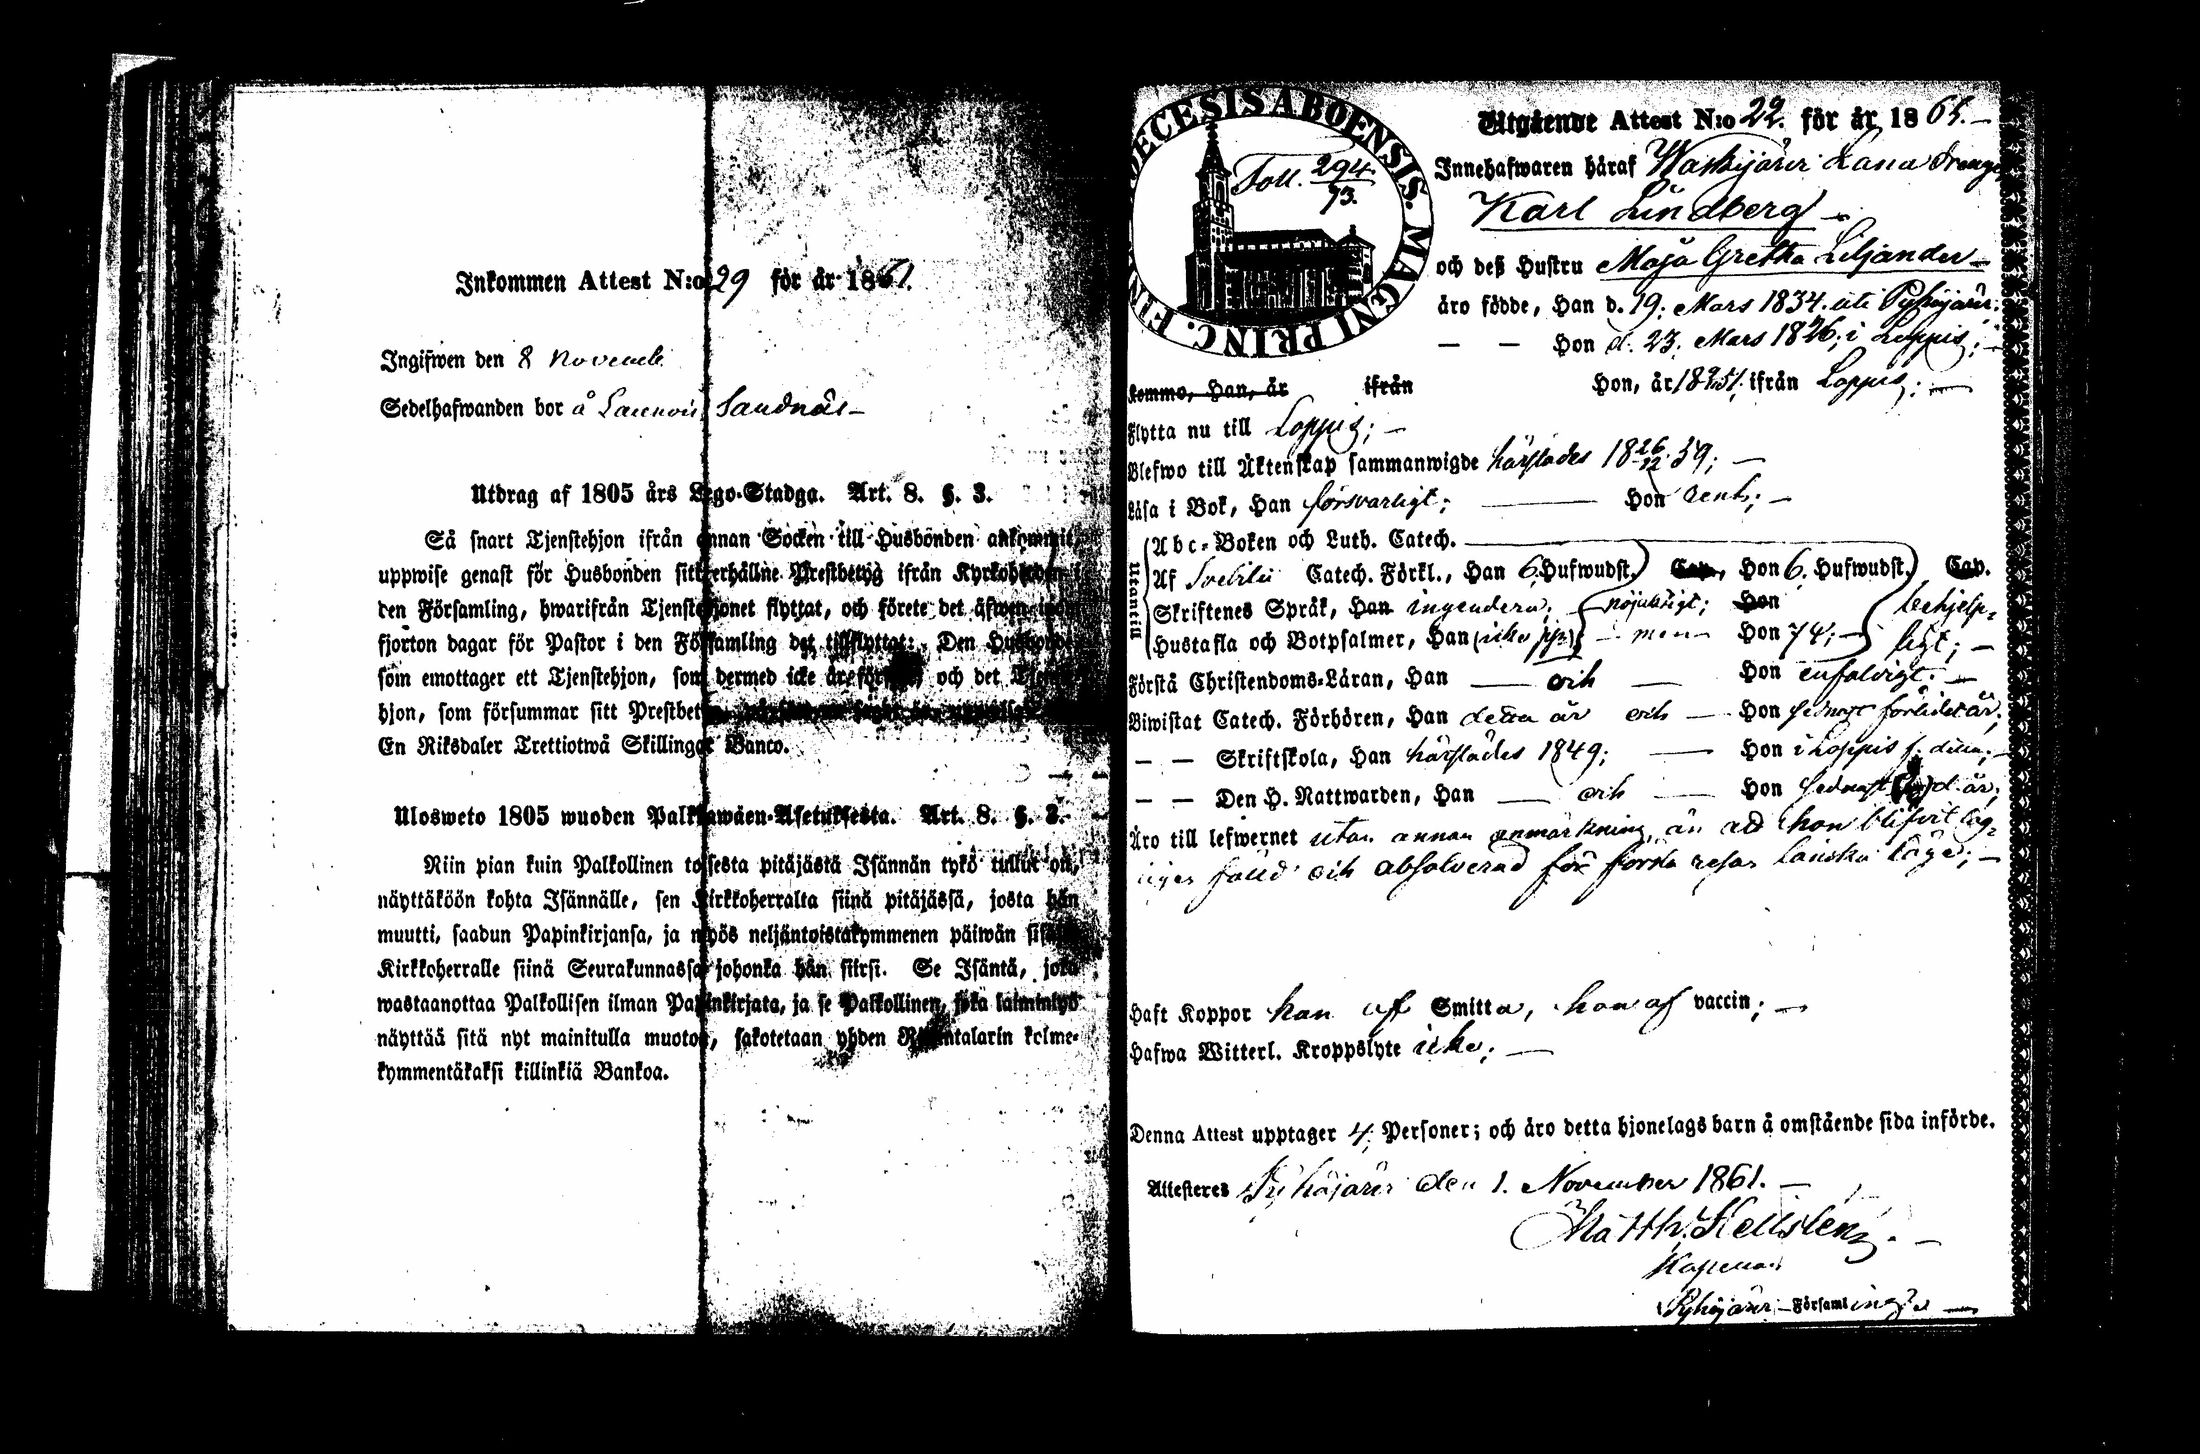 Inkommen Attest N:o 29 för år 1861.
Ingifwen den 8 Novemb
Sedelhafwanden bor å Sandnäs
Utdrag af 1805 års Lego-Stadga. Art. 8. §. 3.
Så snart Tjenstehjon ifrån annan Socken till Husbonden ankommit,
uppwise genast för Husbonden sitt erhållne Prestbetyg ifrån
den Församling, hwarifrån Tjenstehjonet flyttat, och förete det äfwen
fjorton dagar för Pastor i den Församling det tillflyttat: Den
som emottager ett Tjenstehjon, som dermed icke är och det
hjon, som försummar sitt
En Riksdaler Trettiotwå Skillingar Banco.
Ulosweto 1805 wuoden Palkkawäen-Asetuksesta. Art. 8. §. 3.
Niin pian kuin Palkollinen toisesta pitäjästä Isännän tykö tullut on,
näyttäköön kohta Isännälle, sen Kirkkoherralta siinä pitäjässä, josta hän
muutti, saadun Papinkirjansa, ja myös neljäntoistakymmenen päiwän
Kirkkoherralle siinä Seurakunnassa johonka hän siirsi. Se Isäntä, joka
wastaanottaa Palkollisen ilman Papinkirjata, ja se Palkollinen, joka laiminlyö
näyttää sitä nyt mainitulla muotoa, sakotetaan yhden Riksintalarin kolme-
kymmentäkaksi killinkiä Bankoa.
DECESIS ABOENSIS. MAGNI PRINC. FIN
Foll. 294
93.
Utgående Attest N:o 22. för år 1861.
Innehafwaren häraf Waskijärvi Lana Dreng
Karl Lindberg
och deß Hustru Maja Gretha Liljander
äro födde, Han d. 19. Mars 1834. uti Pyhäjärvi.
— — Hon d. 23. Mars 1826; i Loppis;
komme, Han, år ifrån Hon, år 1851. ifrån Loppis;
Flytta nu till Loppis;
Blefwo till Äktenskap sammanwigde härstädes 18 26/12 59;
Läsa i Bok, Han försvarligt; Hon rent;
Utantill
Abc-Boken och Luth. Catech.
Af Svebilii Catech. Förkl., Han 6. Hufwudst. Cap., Hon 6. Hufwudst. Cap.
Skriftenes Språk, Han ingendera; nöjaktigt; Hon behjelp-
Hustafla och Botpsalmer, Han men Hon 74; ligt;
Förstå Christendoms-Läran, Han och Hon enfaldigt.
Biwistat Catech. Förhören, Han detta år och Hon sednast förlidet år;
— — Skriftskola, Han härstädes 1849; Hon i Loppis
— — Den H. Nattwarden, Han och Hon sednast d. år;
Äro till lefwernet utan annan anmärkning, än att hon blifvit lag-
ligen fälld och absolverad för första resan lönska läge;
Haft Koppor han af Smitta, hon af vaccin;
Hafwa Witterl. Kroppslyte icke;
Denna Attest upptager 4. Personer; och äro detta hjonelags barn å omstående sida införde.
Attesteres Pyhäjärvi den 1. November 1861.
Matth. Hellstenz.
Kapellan
Pyhäjärvi Församlings